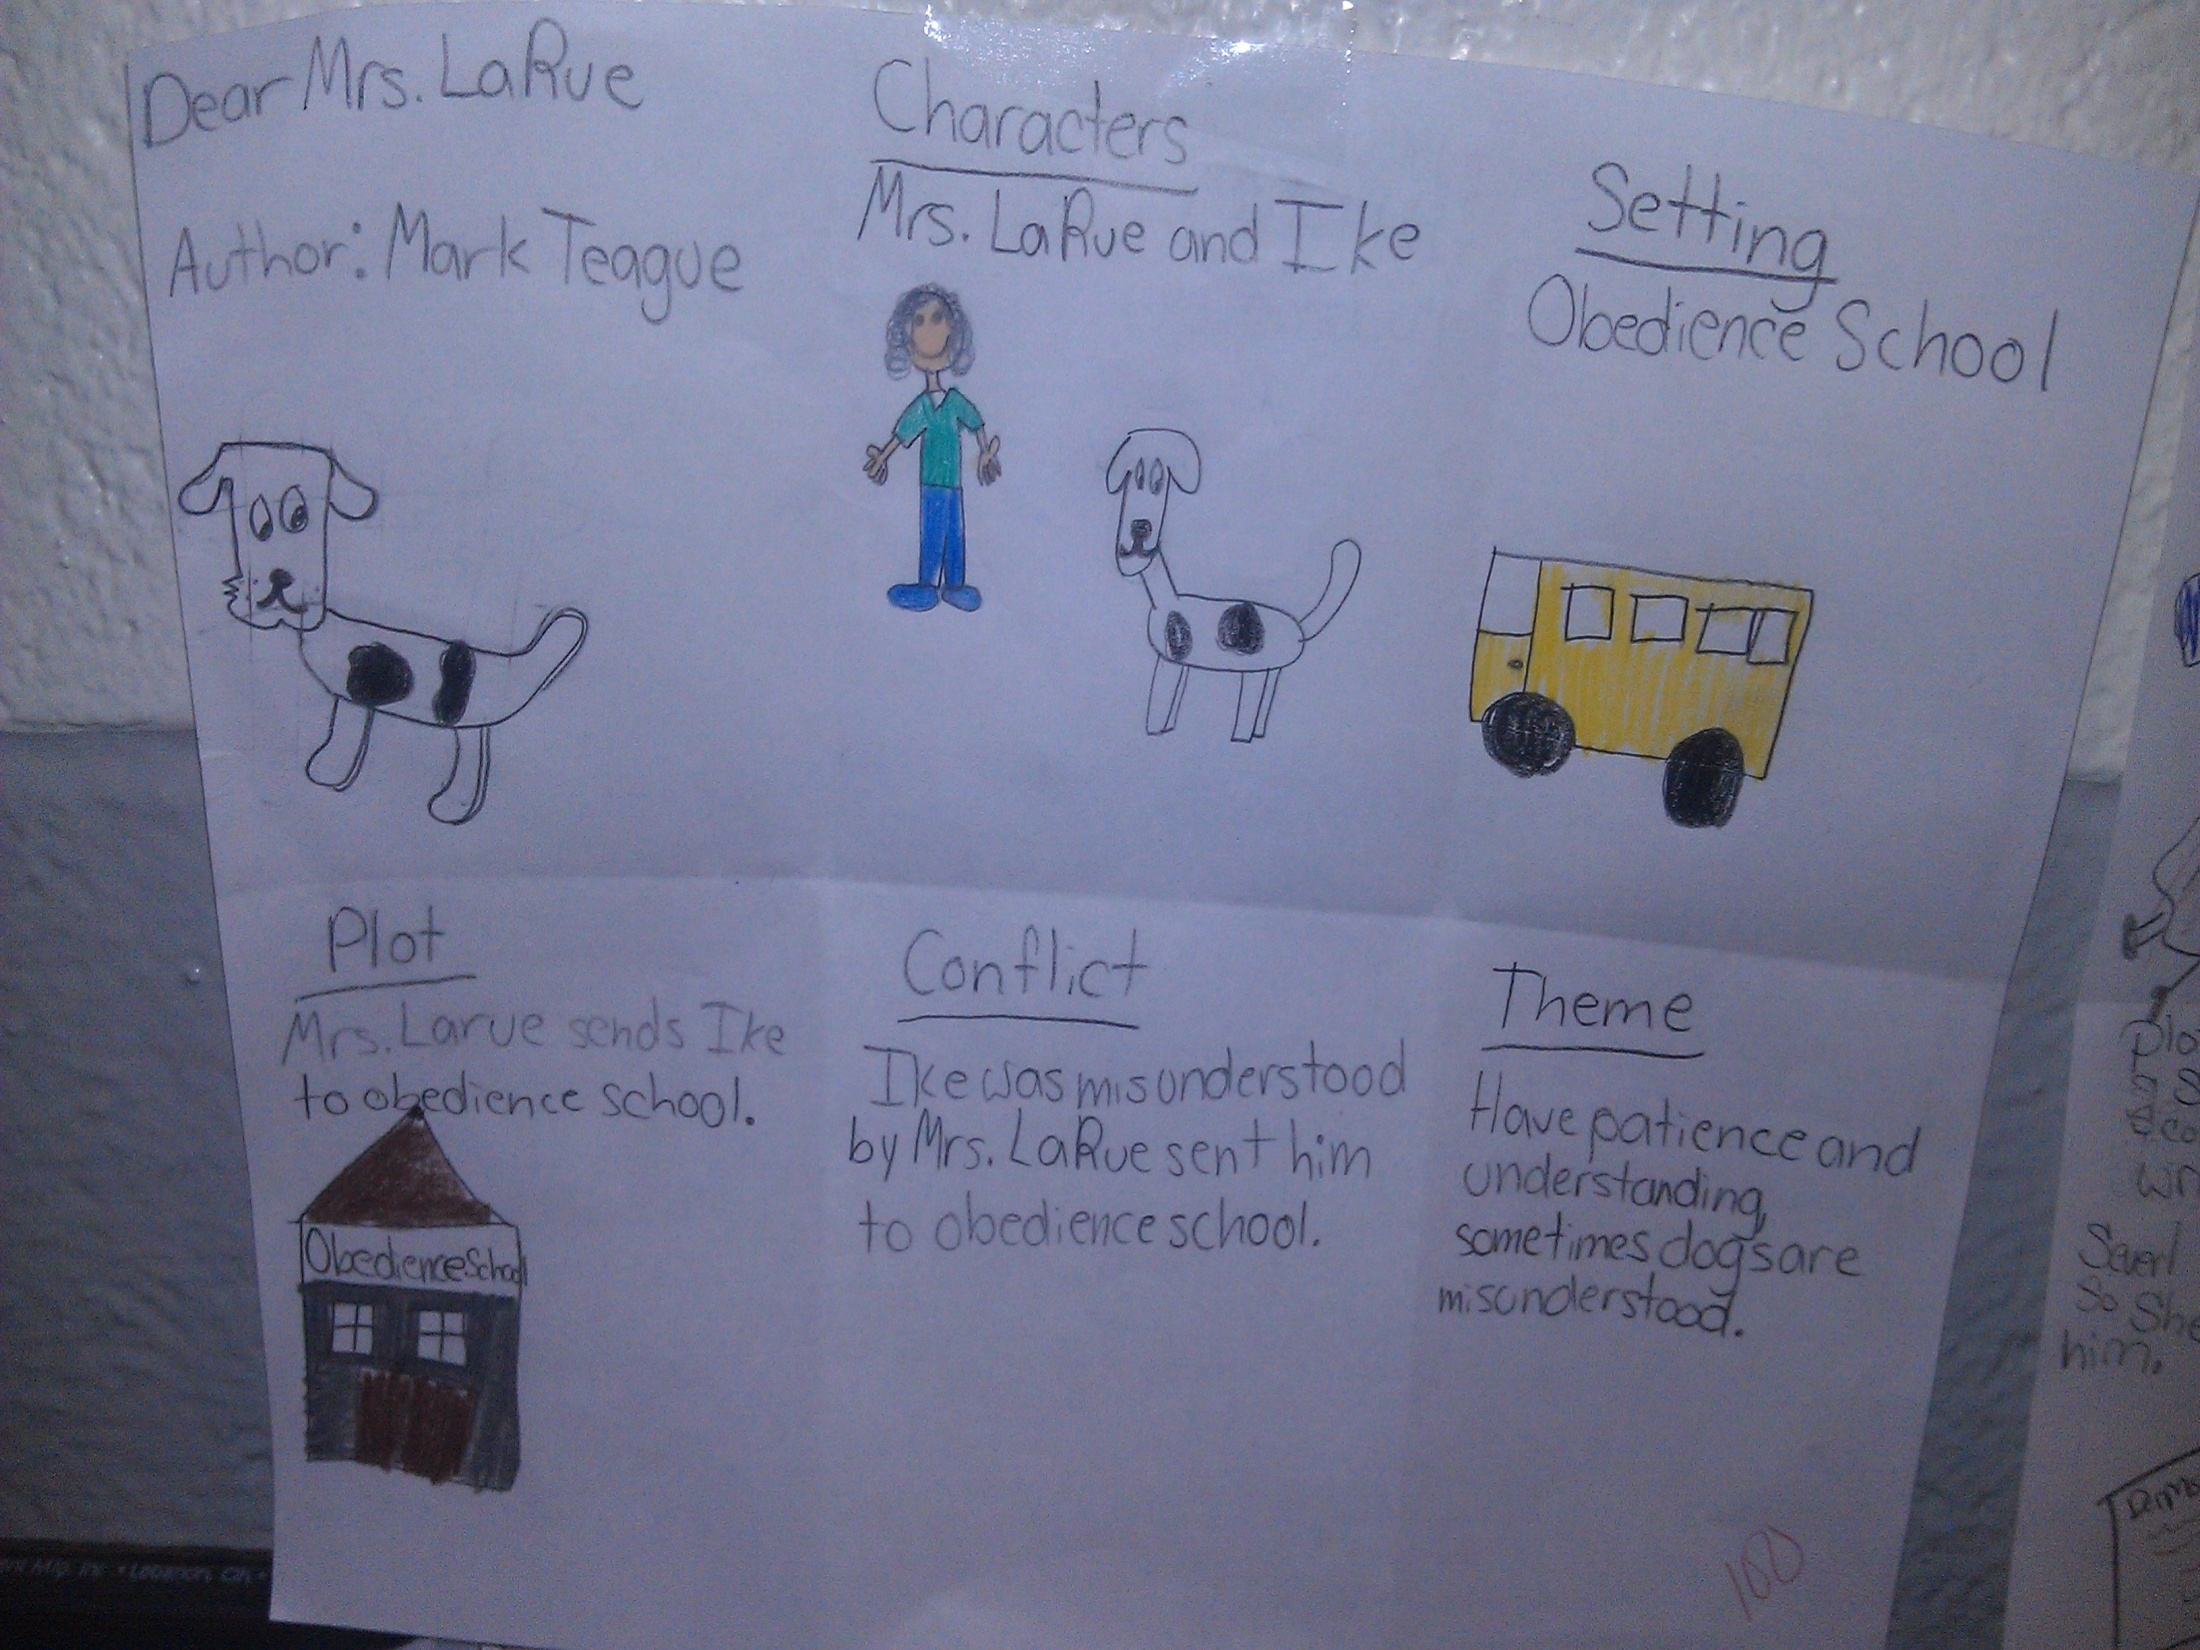 Dear Mrs. LaRue
Author: Mark Teague
Characters
Mrs. LaRue and Ike
Setting
Obedience School
Plot
Mrs. Larue sends Ike
to obedience school.
Obedience School
Conflict
Ike was misunderstood
by Mrs. LaRue sent him
to obedience school.
Theme
Have patience and
understanding,
sometimes dogs are
misunderstood.
100
So She
him.